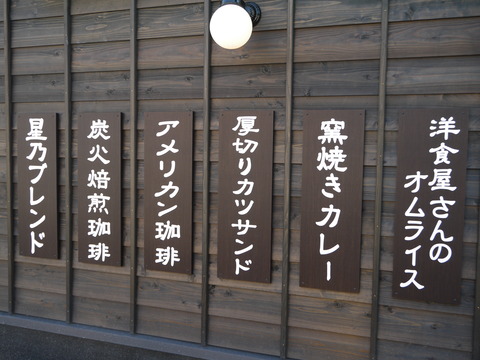 洋食屋さんの
オムライス
窯焼きカレー
厚切りカツサンド
アメリカン珈琲
炭火焙煎珈琲
星乃ブレンド